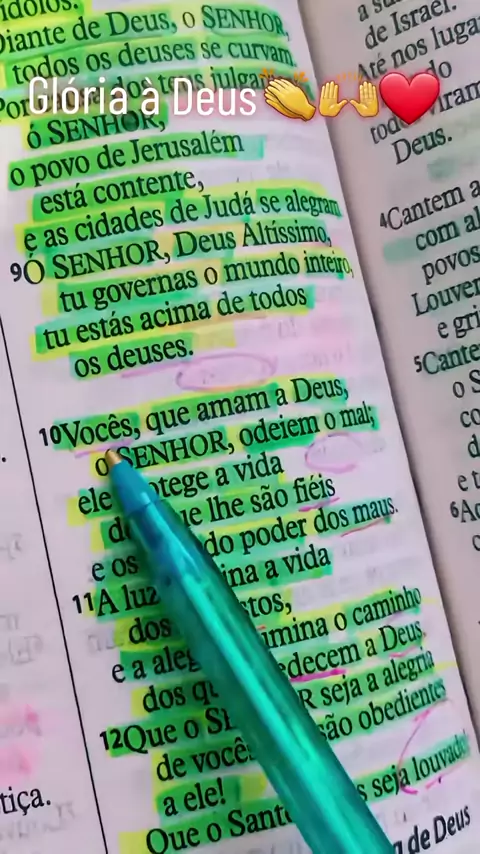 ídolos.
Diante de Deus, o SENHOR,
todos os deuses se curvam.
Glória à Deus👏🙌❤️
ó SENHOR,
o povo de Jerusalém
está contente,
e as cidades de Judá se alegram.
9Ó SENHOR, Deus Altíssimo,
tu governas o mundo inteiro,
tu estás acima de todos
os deuses.
10Vocês, que amam a Deus,
o SENHOR, odeiem o mal;
ele protege a vida
ue lhe são fiéis
e os do poder dos maus.
11A luz ina a vida
dos stos,
imina o caminho
e a aleg decem a Deus.
dos qu
12Que o SE R seja a alegria
de vocês são obedientes
a ele!
Que o Sant seja louvado!
tiça.
de Israel.
Até nos luga
Deus.
4Cantem a
com al
povos
Louvem
e gri
5Cante
o S
co
d
e t
6Ao
c
de Deus